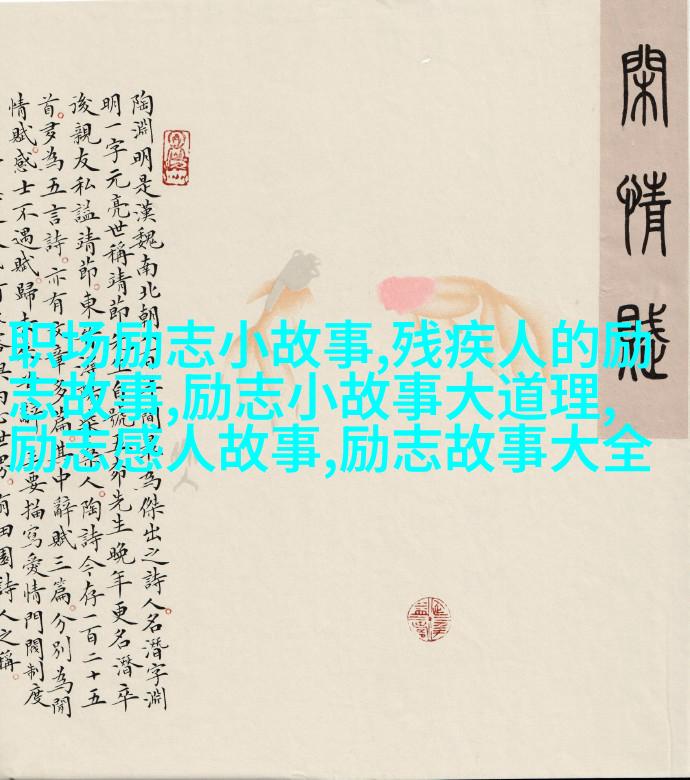 閑情賦
陶淵明是漢魏南北朝百年間為傑出之詩人名潛字淵
明一字元亮世稱靖節號五先生晚年更名潛卒
後親友私謚靖節東桑人陶詩今存一百二十五
首多為五言詩亦有文章多篇其中辭賦三篇分別為閒
情賦感士不遇賦歸辭要描寫愛情門閥制度
田園詩人之稱
职场励志小故事,残疾人的励
志故事,励志小故事大道理,
励志感人故事,励志故事大全